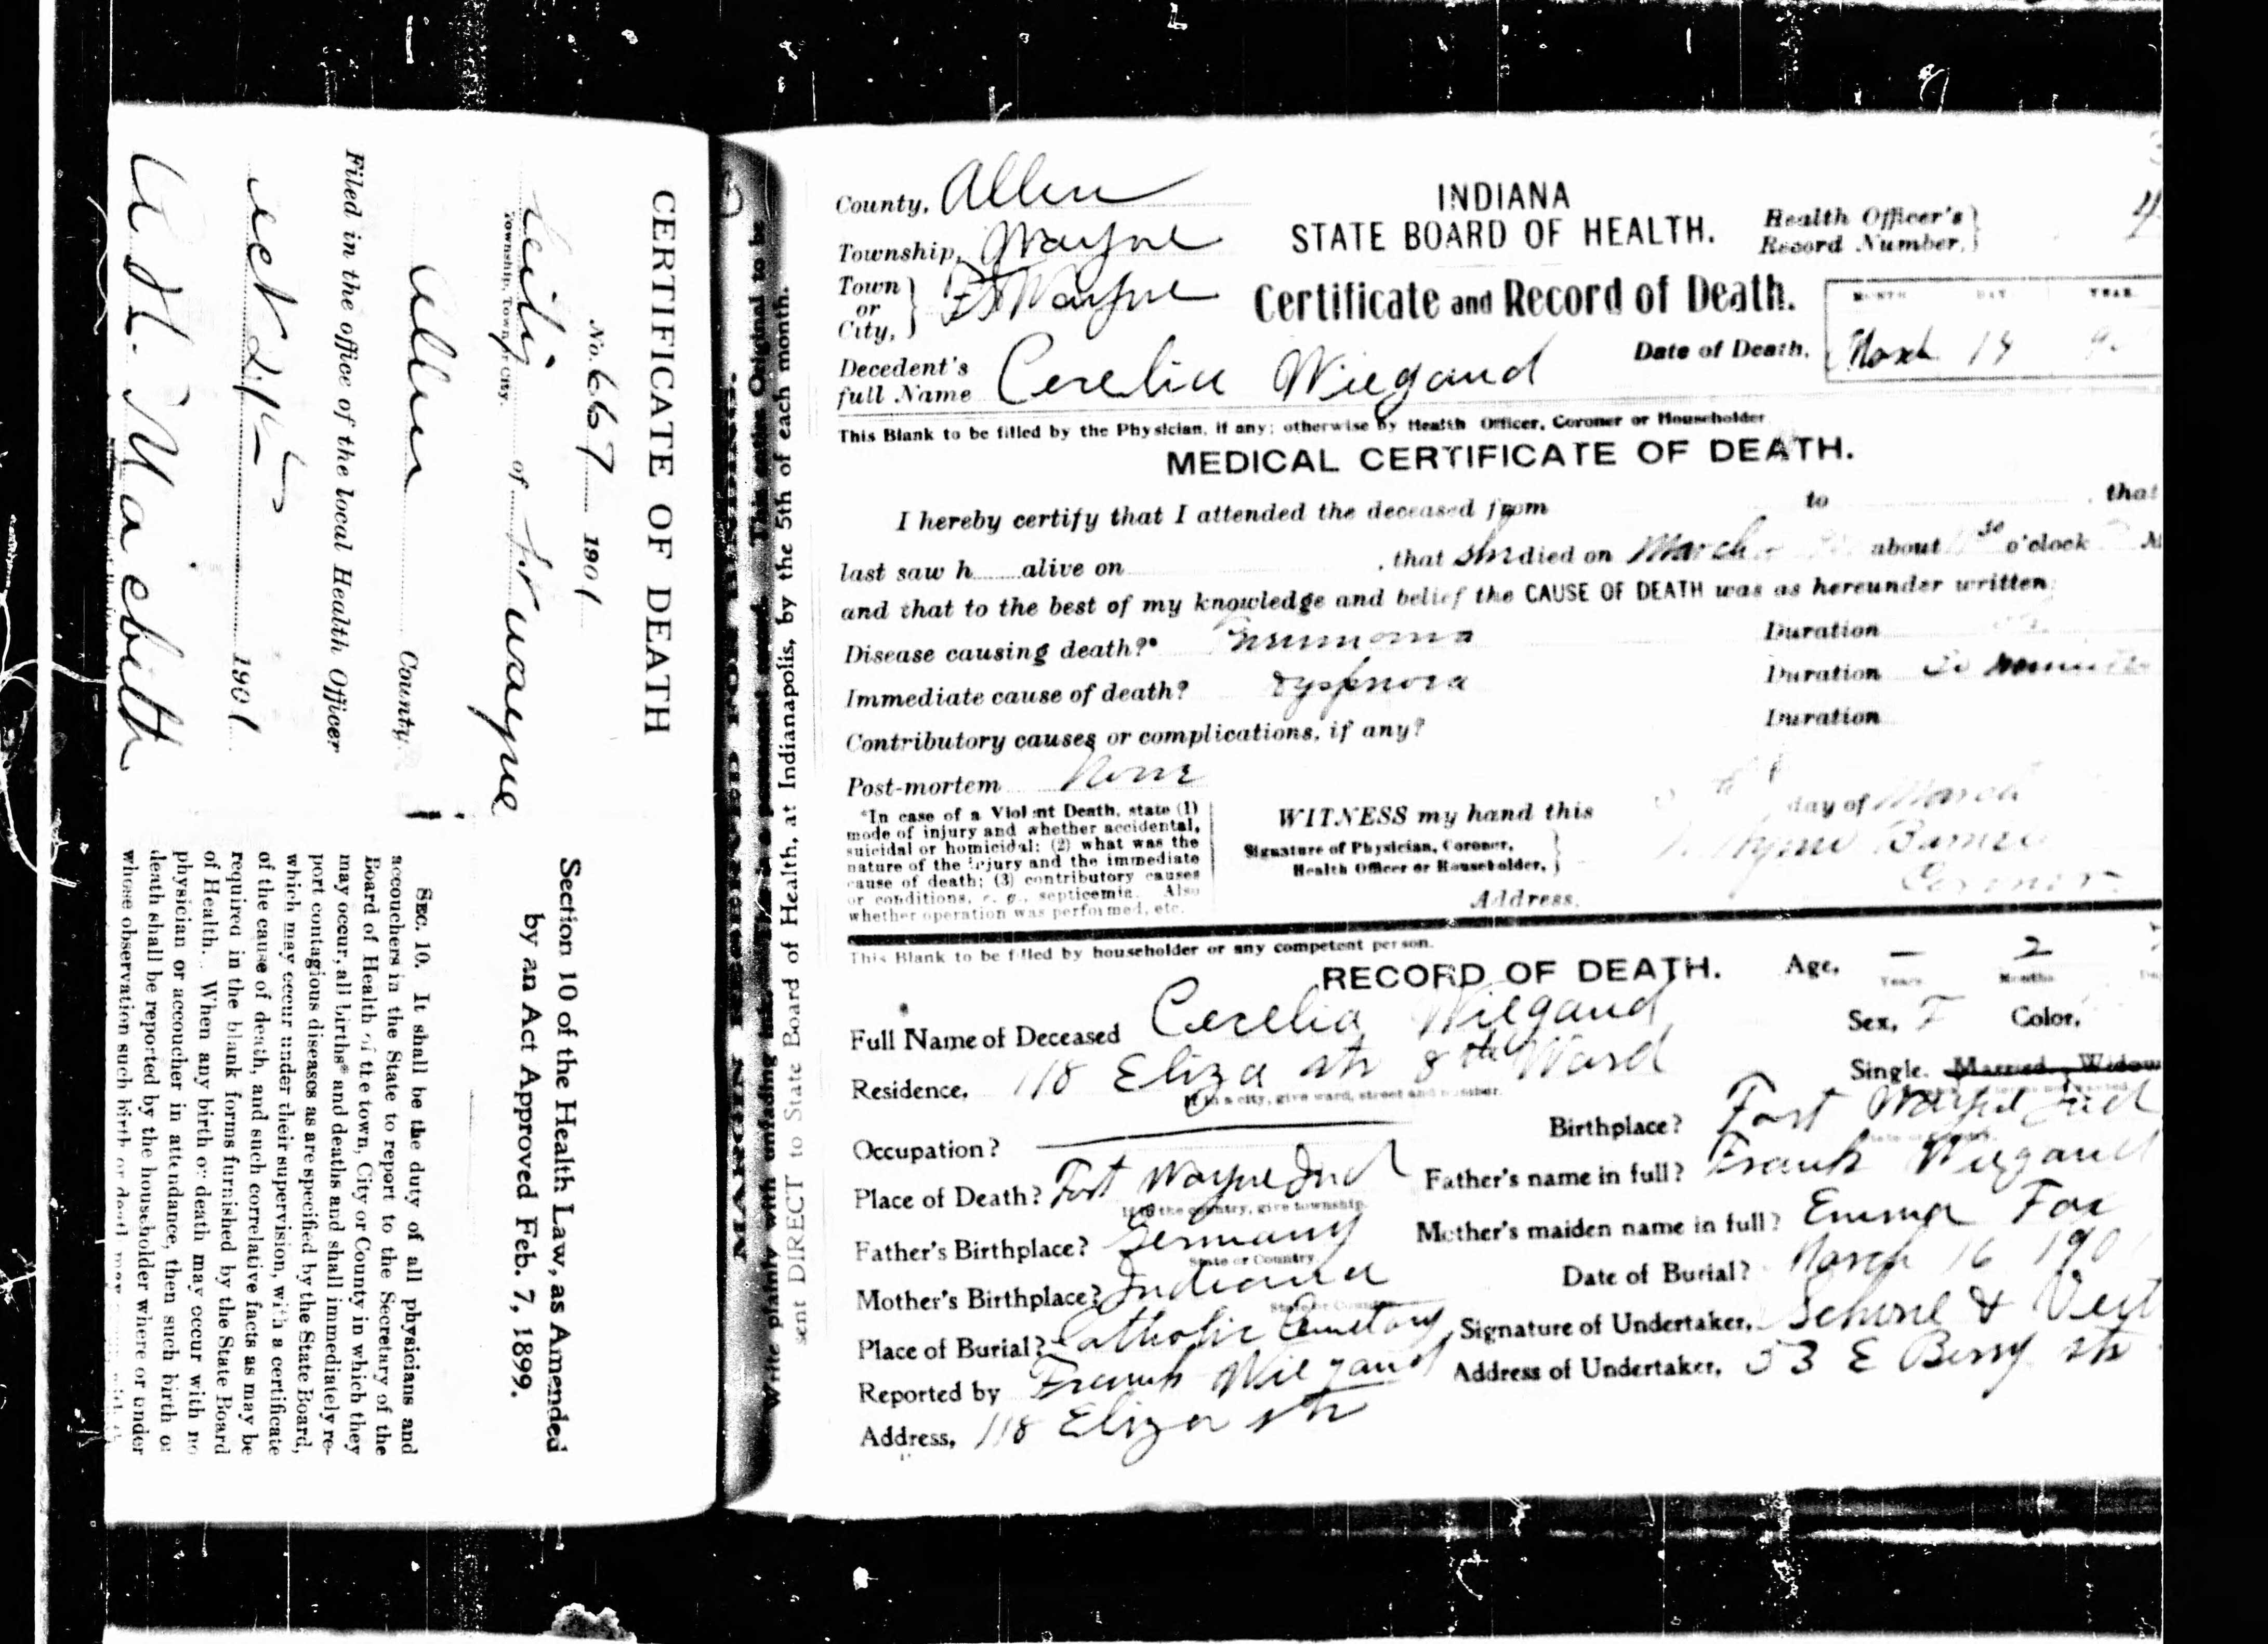 CERTIFICATE OF DEATH
No. 667 1901
City of Ft Wayne
Township, Town or City.
Allen County.
Filed in the office of the local Health Officer
1901
Section 10 of the Health Law, as Amended
by an Act Approved Feb. 7, 1899.
SEC. 10. It shall be the duty of all physicians and
accouchers in the State to report to the Secretary of the
Board of Health of the town, City or County in which they
may occur, all births* and deaths and shall immediately re-
port contagious diseases as are specified by the State Board,
which may occur under their supervision, with a certificate
of the cause of death, and such correlative facts as may be
required in the blank forms furnished by the State Board
of Health. When any birth or death may occur with no
physician or accoucher in attendance, then such birth or
death shall be reported by the householder where or under
whose observation such birth or death may
Write plainly with unfading
sent DIRECT to State Board of Health, at Indianapolis, by the 5th of each month.
County, Allen
Township, Wayne
Town or City, Ft Wayne
INDIANA
STATE BOARD OF HEALTH.
Health Officer's Record Number,
Certificate and Record of Death.
MONTH DAY YEAR
Date of Death, March
Decedent's full Name Cerelia Wiegand
This Blank to be filled by the Physician, if any; otherwise by Health Officer, Coroner or Householder
MEDICAL CERTIFICATE OF DEATH.
I hereby certify that I attended the deceased from to , that
last saw h alive on , that she died on March about 30 o'clock
and that to the best of my knowledge and belief the CAUSE OF DEATH was as hereunder written:
Disease causing death?* Pneumonia Duration
Immediate cause of death? Dyspnoea Duration
Contributory causes or complications, if any? Duration
Post-mortem None
*In case of a Violent Death, state (1)
mode of injury and whether accidental,
suicidal or homicidal; (2) what was the
nature of the injury and the immediate
cause of death; (3) contributory causes
or conditions, e. g., septicemia. Also
whether operation was performed, etc.
WITNESS my hand this day of March
Signature of Physician, Coroner,
Health Officer or Householder,
Coroner.
Address,
This Blank to be filled by householder or any competent person.
RECORD OF DEATH.
Age, — Years 2 Months
Full Name of Deceased Cerelia Wiegand
Sex, F Color,
Residence, 118 Eliza str 8th Ward
If in a city, give ward, street and number.
Single. Married. Widow
Occupation? —
Birthplace? Fort Wayne Ind
Place of Death? Fort Wayne Ind
If in the country, give township.
Father's name in full? Frank Wiegand
Father's Birthplace? Germany
State or Country
Mother's maiden name in full? Emma Fox
Mother's Birthplace? Indiana
State or Country
Date of Burial? March 16 190
Place of Burial? Catholic Cemetary
Signature of Undertaker, Schone & Veit
Reported by Frank Wiegand
Address of Undertaker, 53 E Berry str
Address, 118 Eliza str